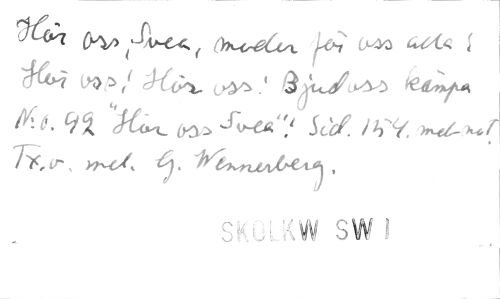 Hör oss, Svea, moder för oss alla!
Hör oss! Hör oss! Bjud oss kämpa
N:o. 92 "Hör oss Svea"! Sid. 154. mel-not.
Tx. o. mel. G. Wennerberg.
SKOLKW SW I